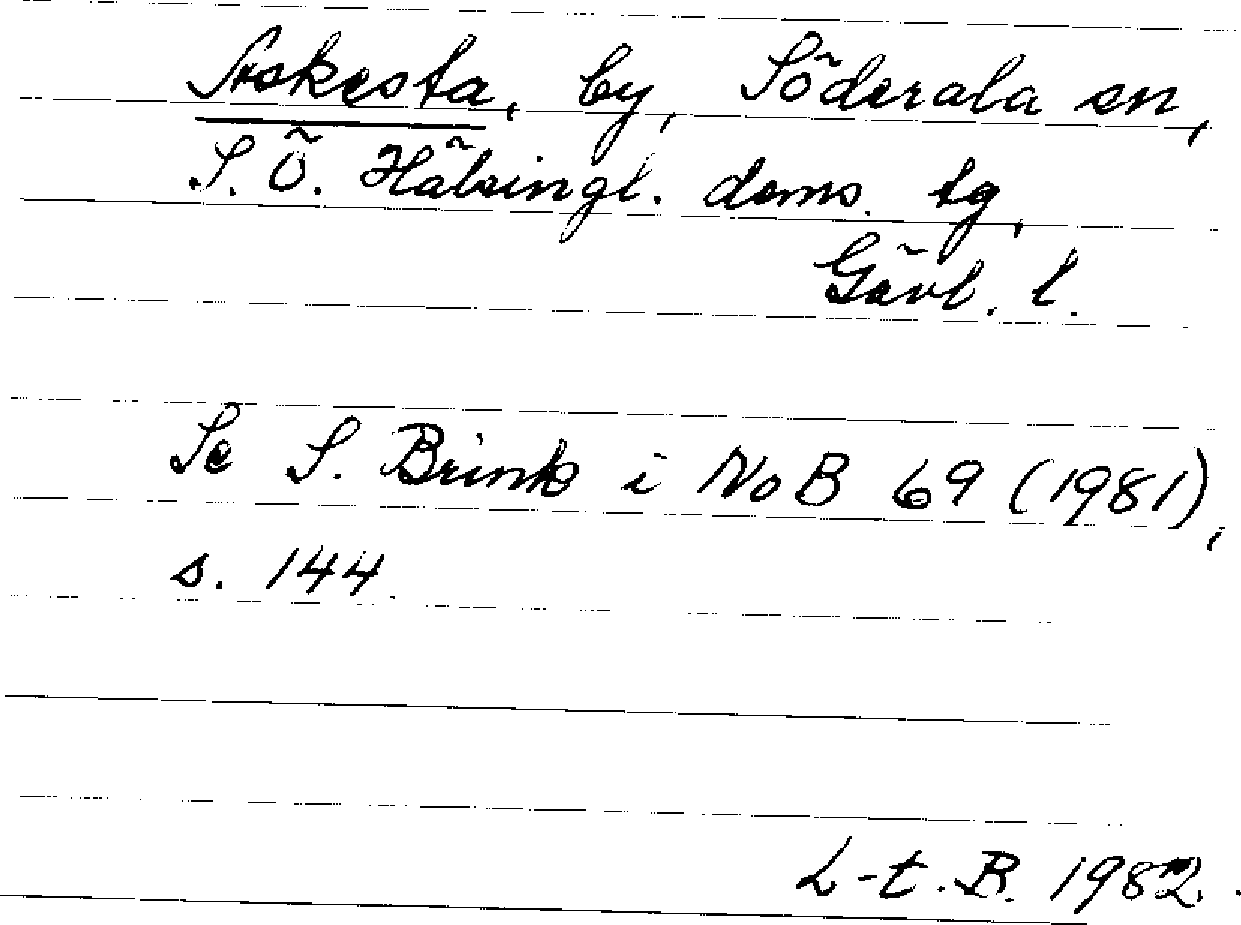 Askesta, by, Söderala sn,
S. Ö. Hälsingl. doms. tg,
Gävl. l.
Se S. Brink i NoB 69 (1981),
s. 144.
L-t. B. 1982.